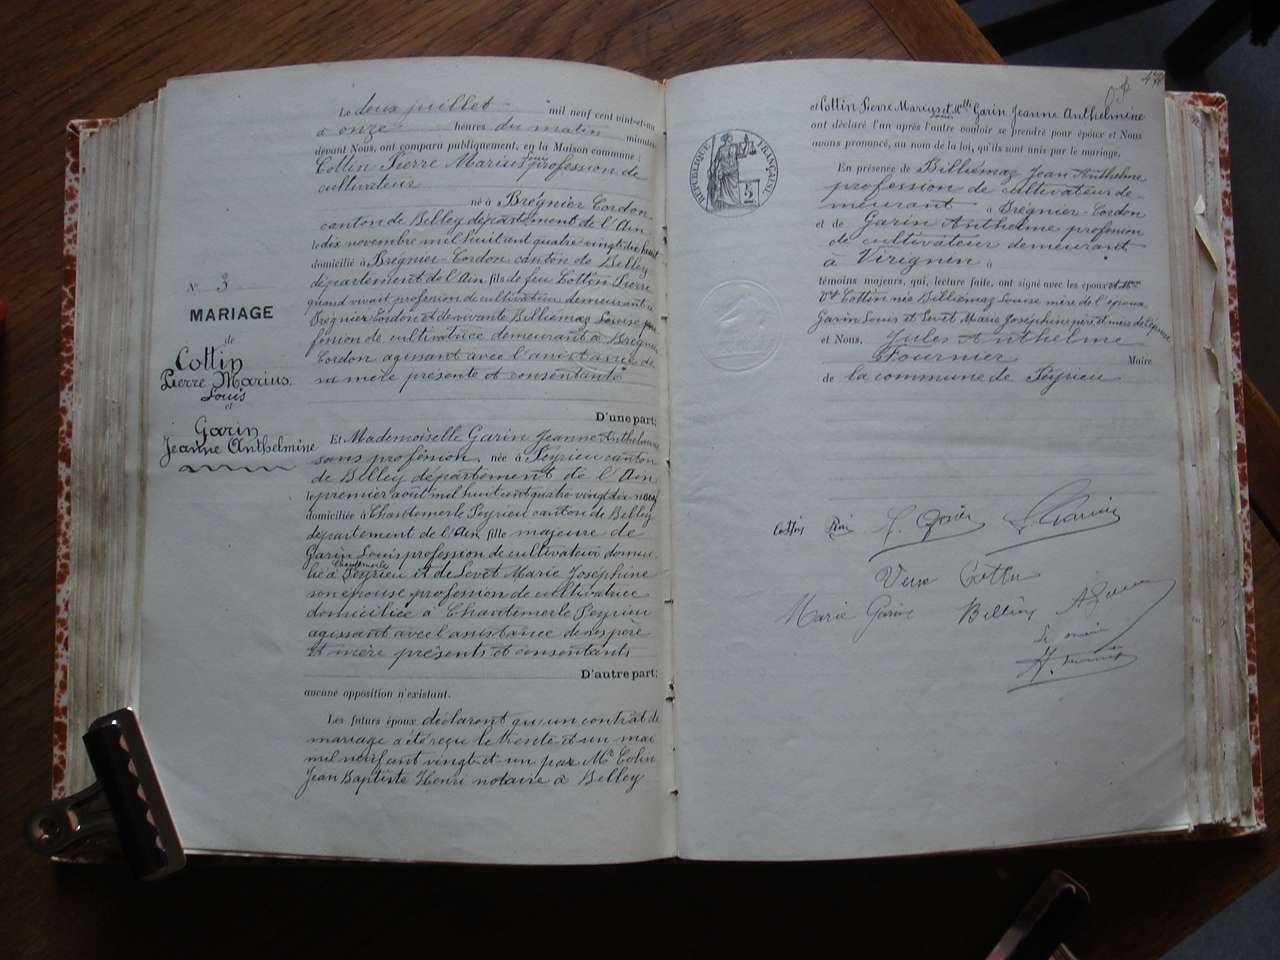 N° 3
MARIAGE
de
Cottin
Pierre Marius
Louis
et
Garin
Jeanne Anthelmine
Le deux juillet mil neuf cent vint-et-un
à onze heures du matin minutes
devant Nous, ont comparu publiquement, en la Maison commune :
Cottin Pierre Marius Louis profession de
cultivateur
né à Brégnier Cordon
canton de Belley département de l'Ain
le dix novembre mil huit cent quatre vingt dix huit
domicilié à Brégnier-Cordon canton de Belley
département de l'Ain fils de feu Cottin Pierre
quand vivait profession de cultivateur demeurant à
Brégnier Cordon et de vivante Billiémaz Louise pro
fession de cultivatrice demeurant à Brégnier
Cordon agissant avec l'assistance de
sa mère présente et consentante
D'une part;
Et Mademoiselle Garin Jeanne Anthelmine
sans profession, née à Peyrieu canton
de Belley département de l'Ain
le premier août mil huit cent quatre vingt dix neuf
domiciliée à Chantemerle Peyrieu canton de Belley
département de l'Ain fille majeure de
Garin Louis profession de cultivateur domici-
lié à Chantemerle Peyrieu et de Levet Marie Joséphine
son épouse profession de cultivatrice
domiciliée à Chantemerle Peyrieu
agissant avec l'assistance de ses père
et mère présents et consentants
D'autre part;
aucune opposition n'existant.
Les futurs époux déclarent qu'un contrat de
mariage a été reçu le trente-et-un mai
mil neuf cent vingt-et-un par Me Colin
Jean Baptiste Henri notaire à Belley
et Cottin Pierre Marius Louis et Melle Garin Jeanne Anthelmine
ont déclaré l'un après l'autre vouloir se prendre pour époux et Nous
avons prononcé, au nom de la loi, qu'ils sont unis par le mariage.
RÉPUBLIQUE FRANÇAISE
En présence de Billiémaz Jean Anthelme
profession de cultivateur de-
meurant à Brégnier-Cordon
et de Garin Anthelme profession
de cultivateur demeurant
à Virignin à
témoins majeurs, qui, lecture faite, ont signé avec les époux et Mme
Vve Cottin née Billiémaz Louise mère de l'époux
Garin Louis et Levet Marie Joséphine père et mère de l'épouse
et Nous, Jules Anthelme
Fournier Maire
de la commune de Peyrieu
Veuve Cottin
Marie Garin
Le maire